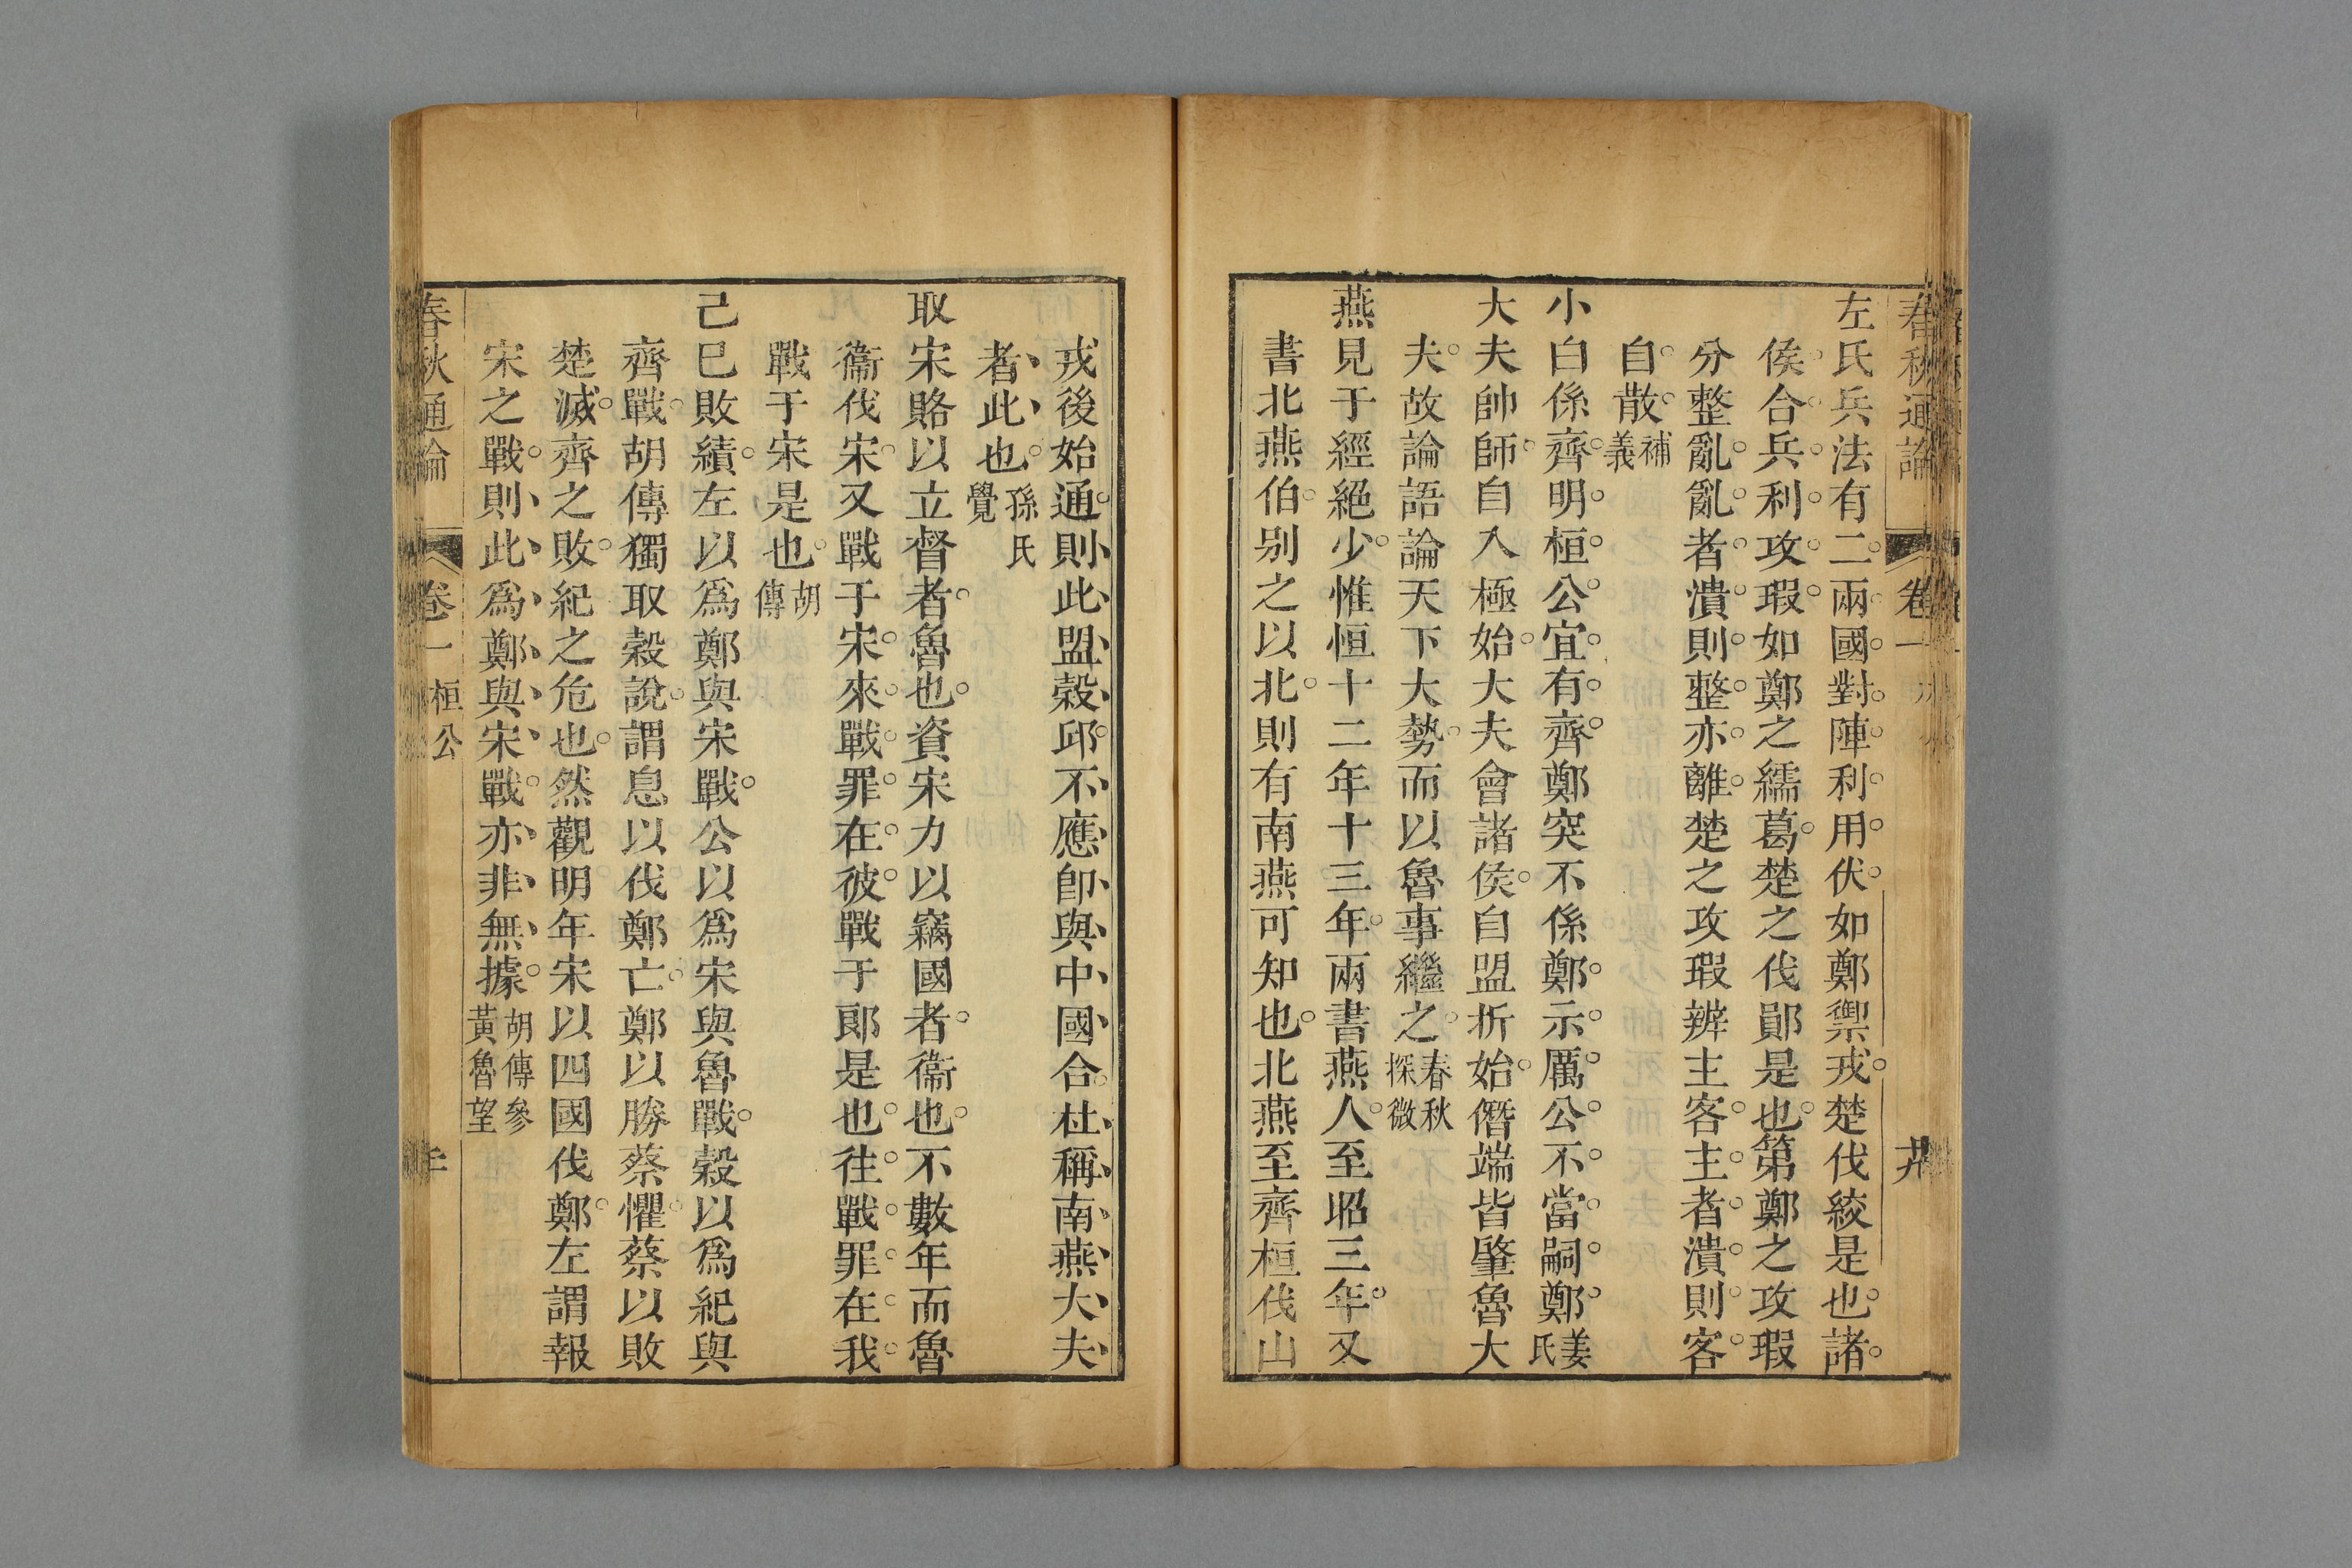 春秋通論 卷一 廾
左氏兵法有二兩國對陣利用伏如鄭禦戎楚伐絞是也諸
侯合兵利攻瑕如鄭之繻葛楚之伐鄖是也第鄭之攻瑕
分整亂亂者潰則整亦離楚之攻瑕辨主客主者潰則客
自散補義
小白係齊明桓公宜有齊鄭突不係鄭示厲公不當嗣鄭姜氏
大夫帥師自入極始大夫會諸侯自盟折始僭端皆肇魯大
夫故論語論天下大勢而以魯事繼之春秋探微
燕見于經絕少惟恒十二年十三年兩書燕人至昭三年又
書北燕伯别之以北則有南燕可知也北燕至齊桓伐山
戎後始通則此盟榖邱不應卽與中國合杜稱南燕大夫
者此也孫氏覺
取宋賂以立督者魯也資宋力以竊國者衞也不數年而魯
衞伐宋又戰于宋宋來戰罪在彼戰于郎是也往戰罪在我
戰于宋是也胡傳
己巳敗績左以爲鄭與宋戰公以爲宋與魯戰榖以爲紀與
齊戰胡傳獨取榖說謂息以伐鄭亡鄭以勝蔡懼蔡以敗
楚滅齊之敗紀之危也然觀明年宋以四國伐鄭左謂報
宋之戰則此爲鄭與宋戰亦非無據胡傳參黃魯望
春秋通論 卷一 桓公